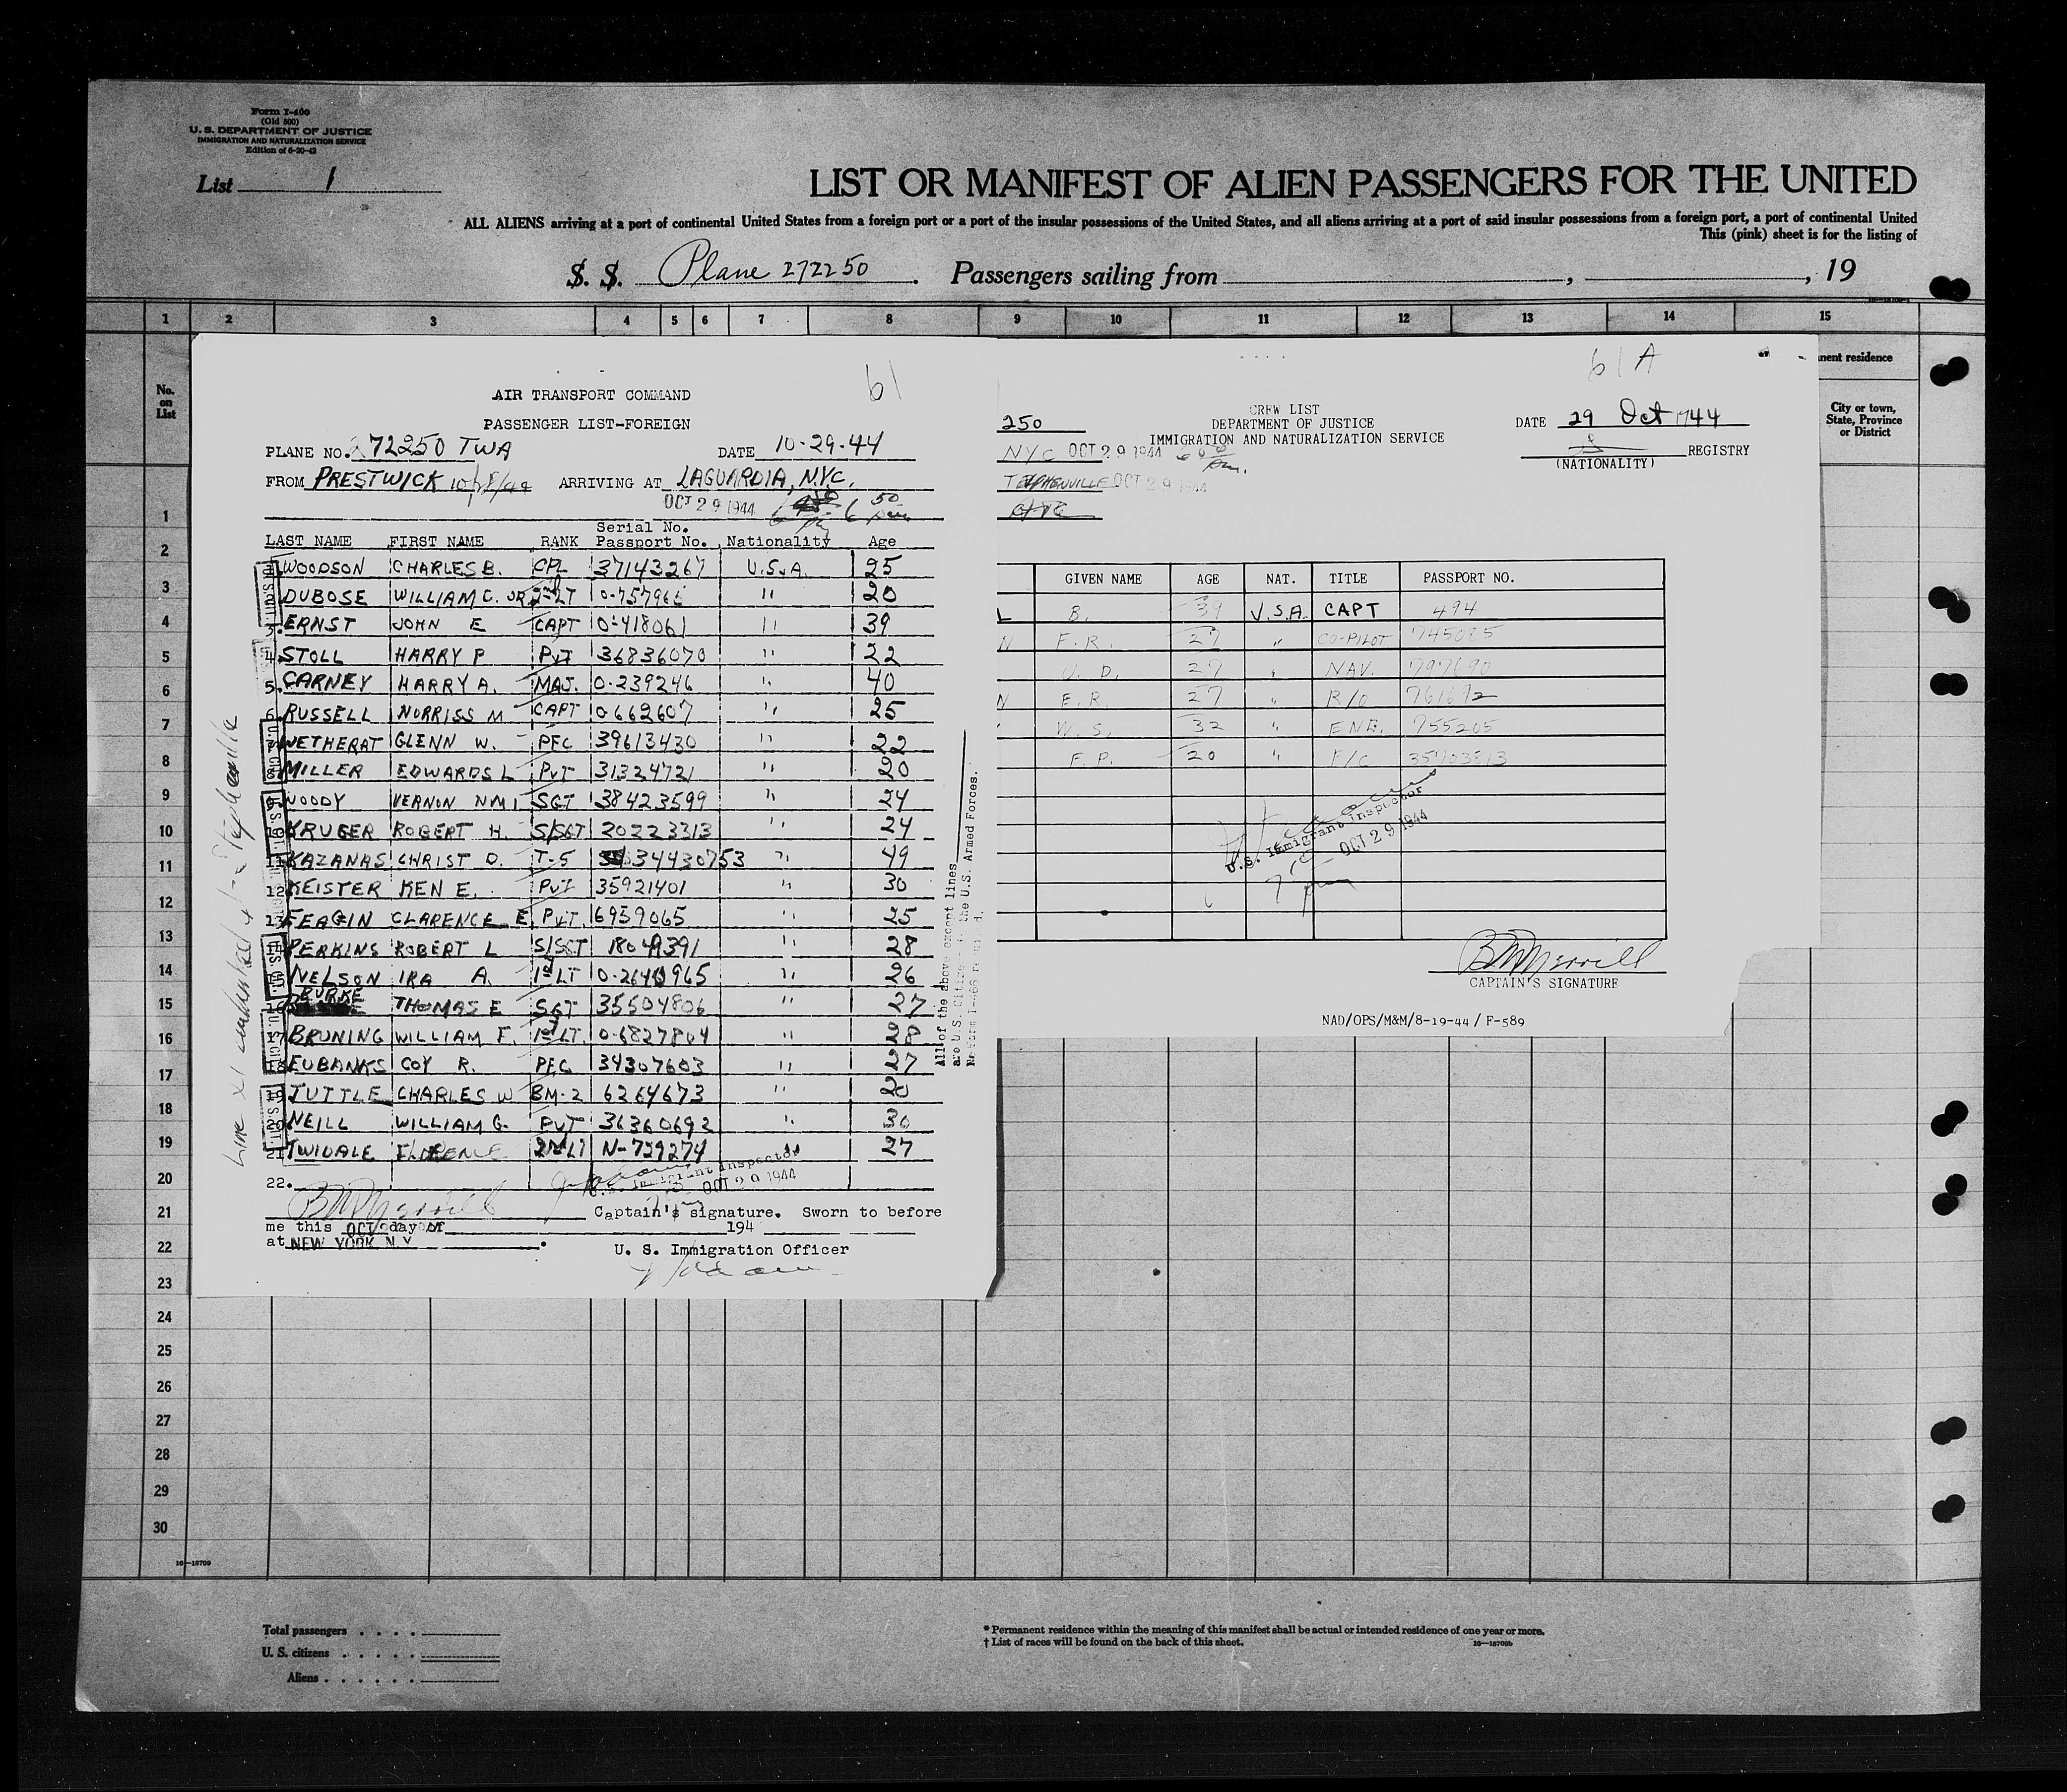 Form I-400
(Old 500)
U. S. DEPARTMENT OF JUSTICE
IMMIGRATION AND NATURALIZATION SERVICE
Edition of 6-20-43
List 1
LIST OR MANIFEST OF ALIEN PASSENGERS FOR THE UNITED
ALL ALIENS arriving at a port of continental United States from a foreign port or a port of the insular possessions of the United States, and all aliens arriving at a port of said insular possessions from a foreign port, a port of continental United
This (pink) sheet is for the listing of
S. S. Plane 272250 . Passengers sailing from , , 19
1 2 3 4 5 6 7 8 9 10 11 12 13 14 15
No. on List
nent residence
City or town, State, Province or District
61
AIR TRANSPORT COMMAND
PASSENGER LIST-FOREIGN
PLANE NO. 272250 TWA DATE 10-29-44
FROM PRESTWICK 10/28/44 ARRIVING AT LAGUARDIA, N.Y.C.
OCT 29 1944 6 50 pm
Serial No.
LAST NAME FIRST NAME RANK Passport No. Nationality Age
WOODSON CHARLES B. CPL 37143267 U.S.A. 25
DUBOSE WILLIAM C. JR LT 20
3. ERNST JOHN E CAPT 0-418061 " 39
4. STOLL HARRY P PVT 36836070 " 22
5. CARNEY HARRY A. MAJ. 0-239246 " 40
6. RUSSELL NORRISS M CAPT 0662607 " 25
7. WETHERAT GLENN W. PFC 39613430 " 22
8. MILLER EDWARDS L PVT 31324721 " 20
9. WOODY VERNON NMI SGT 38423599 " 24
10. KRUGER ROBERT H. S/SGT 20223313 " 24
11. KAZANAS CHRIST D. T-5 34430753 " 49
12. KEISTER KEN E. PVT 35921401 " 30
13. FEAGIN CLARENCE E PVT. 6959065 " 25
14. PERKINS ROBERT L S/SGT " 28
15. NELSON IRA A. 1st LT " 26
16. BURKE THOMAS E SGT 35504806 " 27
17. BRUNING WILLIAM F. 1st LT. 0-6827804 " 28
18. EUBANKS COY R. PFC 34307603 " 27
19. TUTTLE CHARLES W BM-2 6264673 " 20
20. NEILL WILLIAM G. PVT 36360692 " 30
21. TWIDALE FLORENCE 2nd LT N-729274 " 27
22.
U.S. Immigrant Inspector
OCT 29 1944
B M Merrill Captain's signature. Sworn to before
me this OCT day of 194
at NEW YORK N.Y.
U. S. Immigration Officer
All of the above except lines
are U.S. Citizens the U.S. Armed Forces.
No Form I-466
61 A
250
CREW LIST
DEPARTMENT OF JUSTICE
IMMIGRATION AND NATURALIZATION SERVICE
DATE 29 Oct 1944
NYC OCT 29 1944 pm.
REGISTRY
(NATIONALITY)
OCT 29 1944
GIVEN NAME AGE NAT. TITLE PASSPORT NO.
L B. 39 U.S.A. CAPT 494
N F.R. 27 " CO-PILOT 745085
J. D. 27 " NAV. 797690
N E.R. 27 " R/O 761692
W. S. 32 " ENG. 755205
F. P. 20 " F/C 35703813
U.S. Immigrant Inspector
OCT 29 1944
B M Merrill
CAPTAIN'S SIGNATURE
NAD/OPS/M&M/8-19-44 / F-589
1
2
3
4
5
6
7
8
9
10
11
12
13
14
15
16
17
18
19
20
21
22
23
24
25
26
27
28
29
30
16-18709
Total passengers
U. S. citizens
Aliens
* Permanent residence within the meaning of this manifest shall be actual or intended residence of one year or more.
† List of races will be found on the back of this sheet.
16-18709b